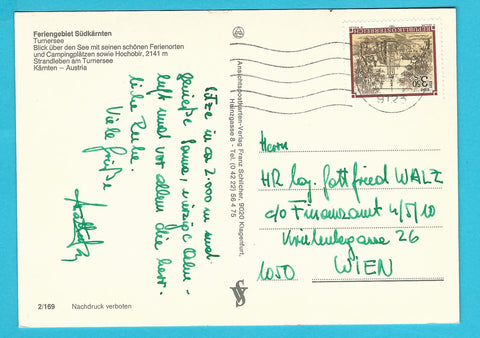 Feriengebiet Südkärnten
Turnersee
Blick über den See mit seinen schönen Ferienorten
und Campingplätzen sowie Hochobir, 2141 m
Strandleben am Turnersee
Kärnten – Austria
Sitze in ca 2.000 m und
genieße Sonne, würzige Alm-
luft und vor allem die herr-
liche Ruhe.
Viele Grüße
Ansichtspostkarten-Verlag Franz Schilcher, 9020 Klagenfurt,
Heinzgasse 8 - Tel. (0 42 22) 56 4 75
REPUBLIK ÖSTERREICH
9123
Herrn
HR Leg. Gottfried WALZ
c/o Finanzamt 4/5/10
Kriehubergasse 26
1050 WIEN
2/169 Nachdruck verboten